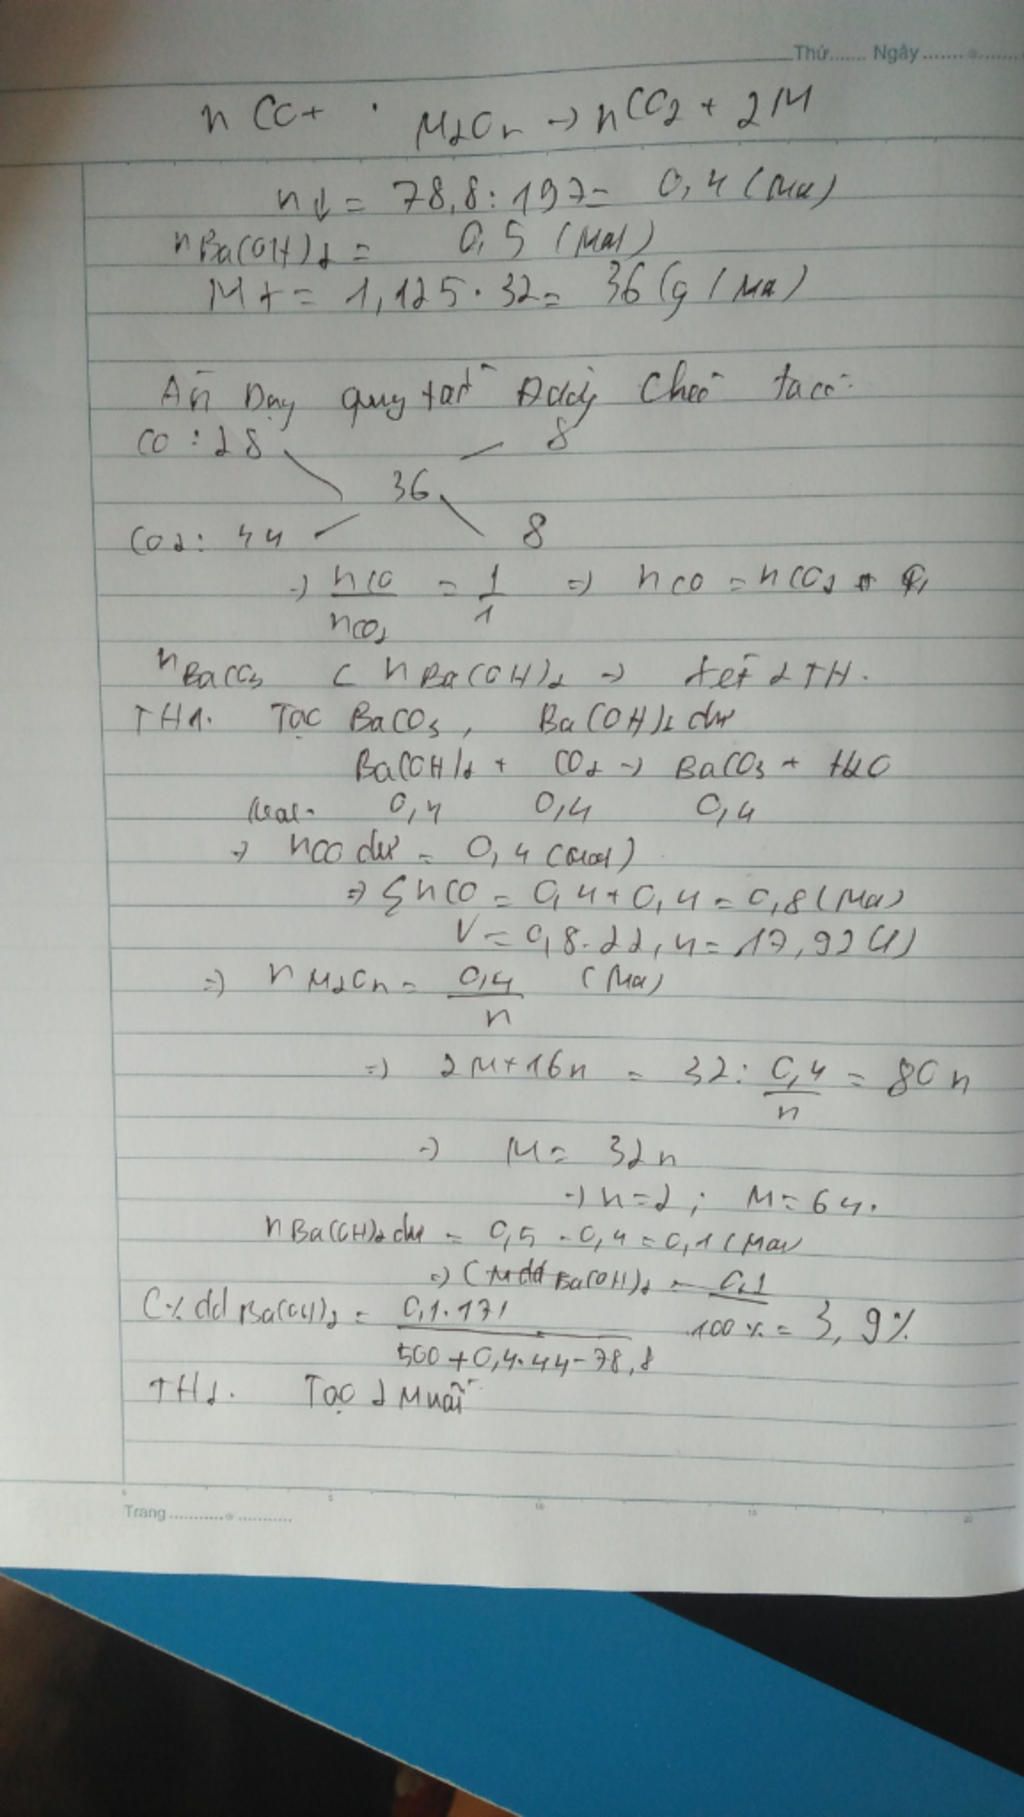 Thứ....... Ngày
n CO + M2On -> nCO2 + 2M
n↓ = 78,8 : 197 = 0,4 (Mol)
nBa(OH)2 = 0,5 (Mol)
M↑ = 1,125 . 32 = 36 (g/Mol)
Áp Dụng quy tắc Đường Chéo ta có
CO : 28 8
36
CO2 : 44 8
=> nCO / nCO2 = 1/1 => nCO = nCO2
nBaCO3 < nBa(OH)2 -> xét 2 TH.
TH1. Tạo BaCO3, Ba(OH)2 dư
Ba(OH)2 + CO2 -> BaCO3 + H2O
Mol. 0,4 0,4 0,4
-> nCO dư = 0,4 (Mol)
=> ΣnCO = 0,4 + 0,4 = 0,8 (Mol)
V = 0,8 . 22,4 = 17,92 (l)
=> nM2On = 0,4/n (Mol)
=> 2M + 16n = 32 : 0,4/n = 80n
-> M = 32n
-> n = 2 ; M = 64.
nBa(OH)2 dư = 0,5 - 0,4 = 0,1 (Mol)
=> Ba(OH)2 = 0,1
C% dd Ba(OH)2 = 0,1 . 171 / 500 + 0,4 . 44 - 78,8 . 100% = 3,9%
TH2. Tạo 2 Muối
Trang